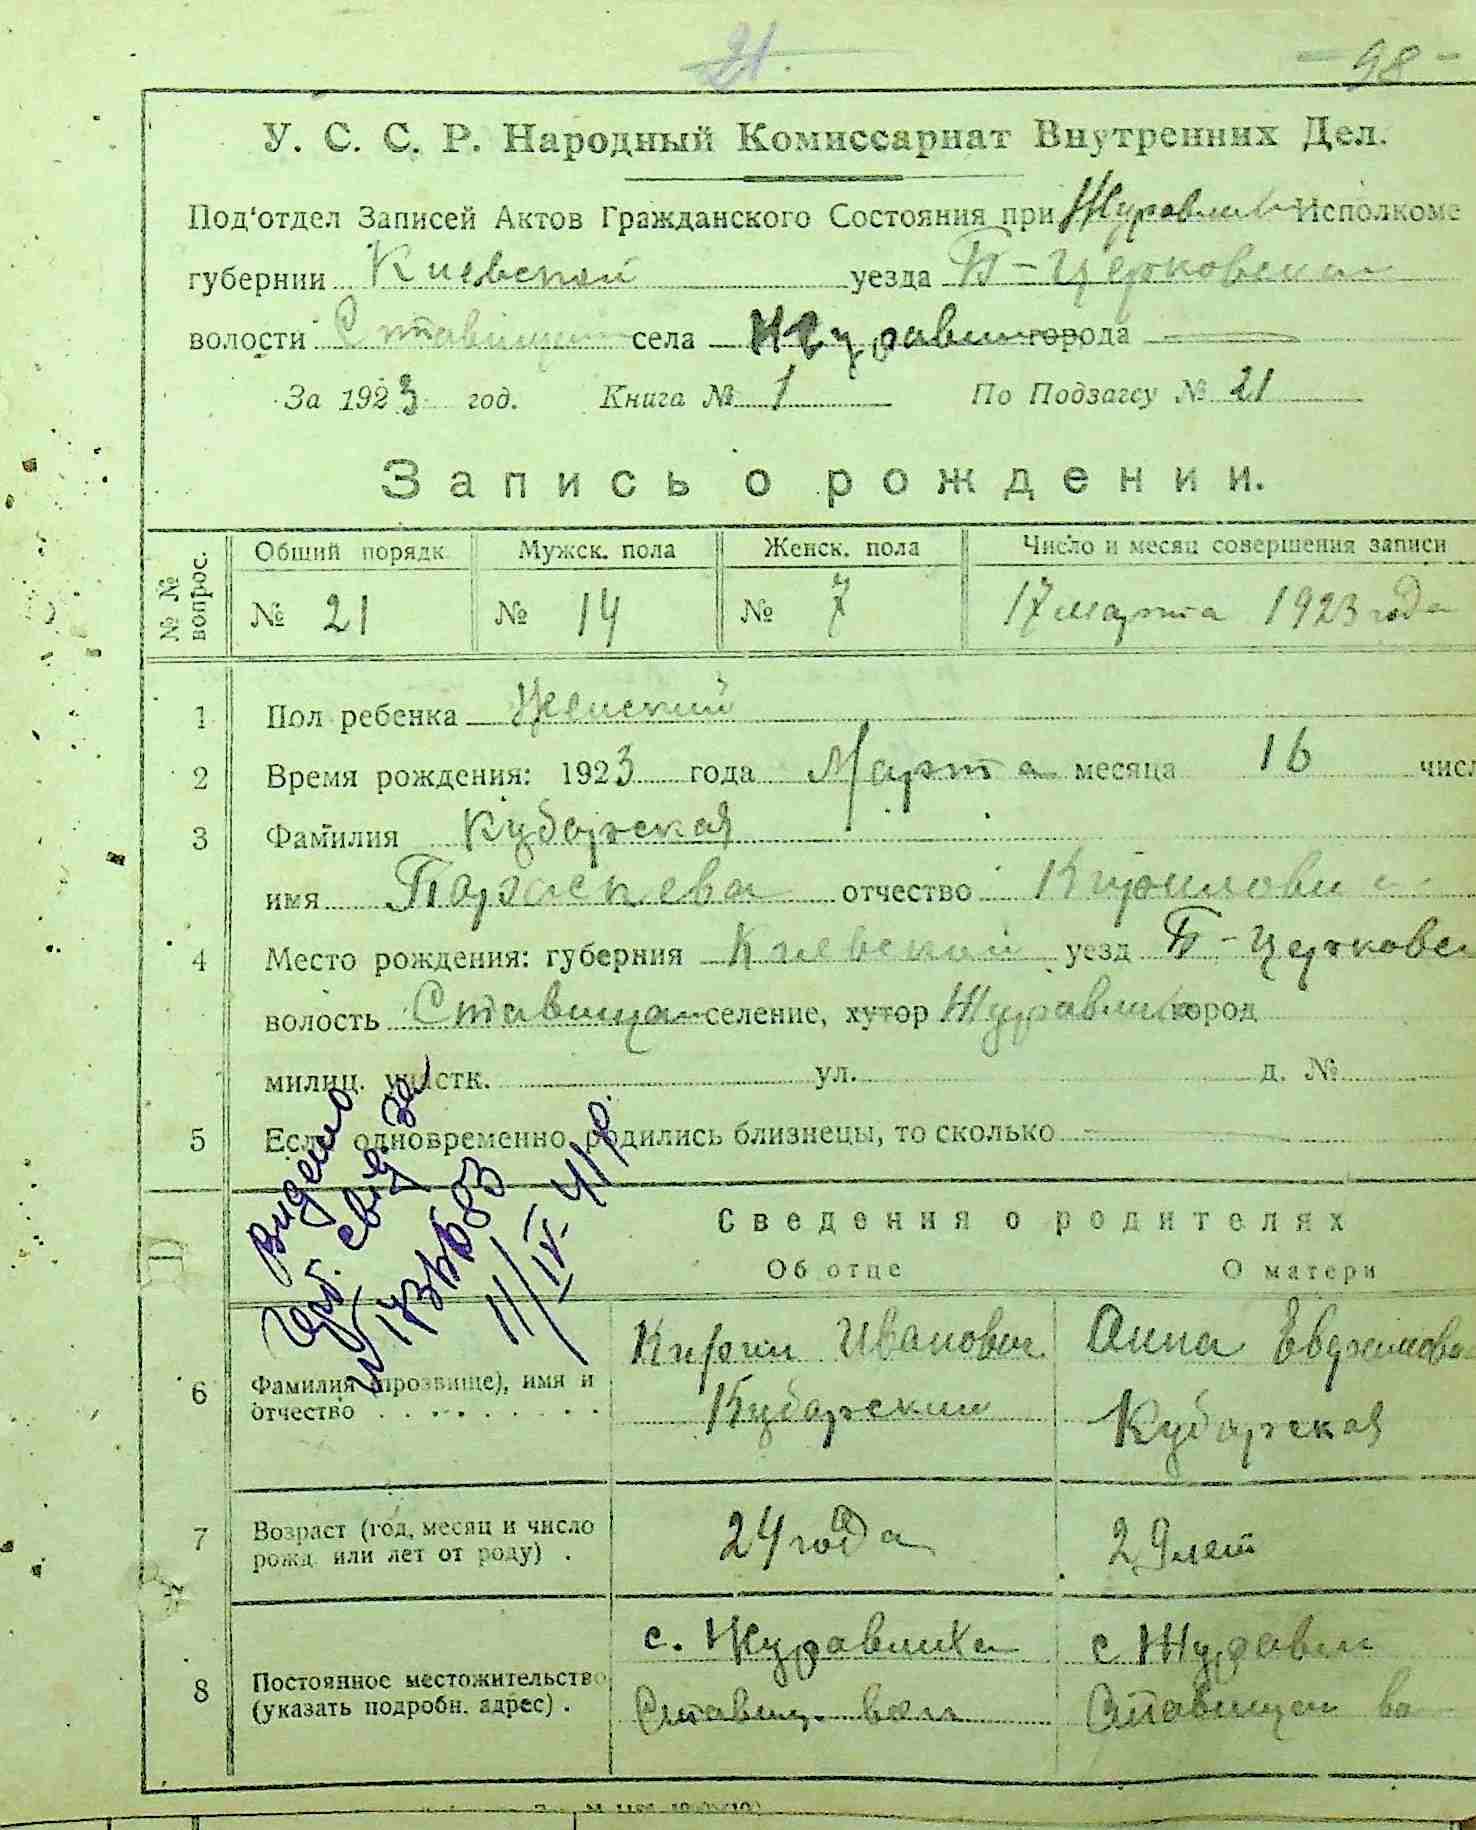 21.
- 98 -
У. С. С. Р. Народный Комиссариат Внутренних Дел.
Под'отдел Записей Актов Гражданского Состояния при Журавлих Исполкоме
губернии Киевской уезда Б-Церковский
волости Ставищан села Журавлих города
За 1923 год. Книга № 1 По Подзагсу № 21
Запись о рождении.
№ № вопрос. Общий порядк Мужск. пола Женск. пола Число и месяц совершения записи
№ 21 № 14 № 7 17 марта 1923 года
1 Пол ребенка Женский
2 Время рождения: 1923 года Марта месяца 16 числ
3 Фамилия Кубарская
имя Параскева отчество Кирилловн
4 Место рождения: губерния Киевской уезд Б-Церковск
волость Ставищан селение, хутор Журавлих город
милиц. участк. ул. д. №
5 Если одновременно родились близнецы, то сколько
Видено
свід за
Сведения о родителях
Об отце О матери
11/IV-41 р.
6 Фамилия (прозвище), имя и отчество Кирил Иванович Кубарский Анна Евдокимовна Кубарская
7 Возраст (год, месяц и число рожд или лет от роду) . 24 года 29 лет
8 Постоянное местожительство (указать подробн. адрес) . с. Журавлиха Ставищ. вол с Журавл Ставищан во